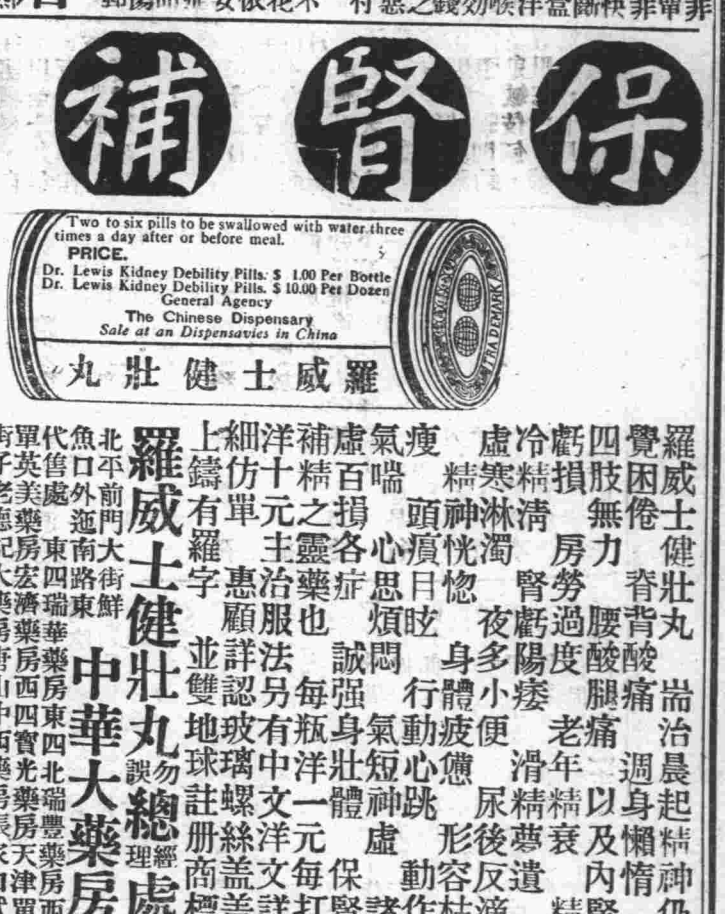 保腎補
Two to six pills to be swallowed with water three
times a day after or before meal.
PRICE.
Dr. Lewis Kidney Debility Pills. $ 1.00 Per Bottle
Dr. Lewis Kidney Debility Pills. $ 10.00 Per Dozen
General Agency
The Chinese Dispensary
Sale at an Dispensavies in China
TRADEMARK
羅威士健壯丸
羅威士健壯丸 耑治晨起精神仍
覺困倦 脊背酸痛 週身懶惰
四肢無力 腰酸腿痛 以及內腎
虧損 房勞過度 老年精衰 精
冷精淸 腎虧陽痿 滑精夢遺
虛寒淋濁 夜多小便 尿後反滴
精神恍惚 身體疲憊 形容枯
瘦 頭癀目眩 行動心跳 動作
氣喘 心思煩悶 氣短神虛 諸
虛百損各症 誠强身壯體 保腎
補精之靈藥也 每瓶洋一元每打
洋十元主治服法另有中文洋文詳
細仿單 惠顧詳認玻璃螺絲盖盖
上鑄有羅字 並雙地球註册商標
羅威士健壯丸勿誤總經理處
北平前門大街鮮
魚口外迤南路東
中華大藥房
代售處 東四瑞華藥房東四北瑞豐藥房西
單英美藥房宏濟藥房西四寶光藥房天津單